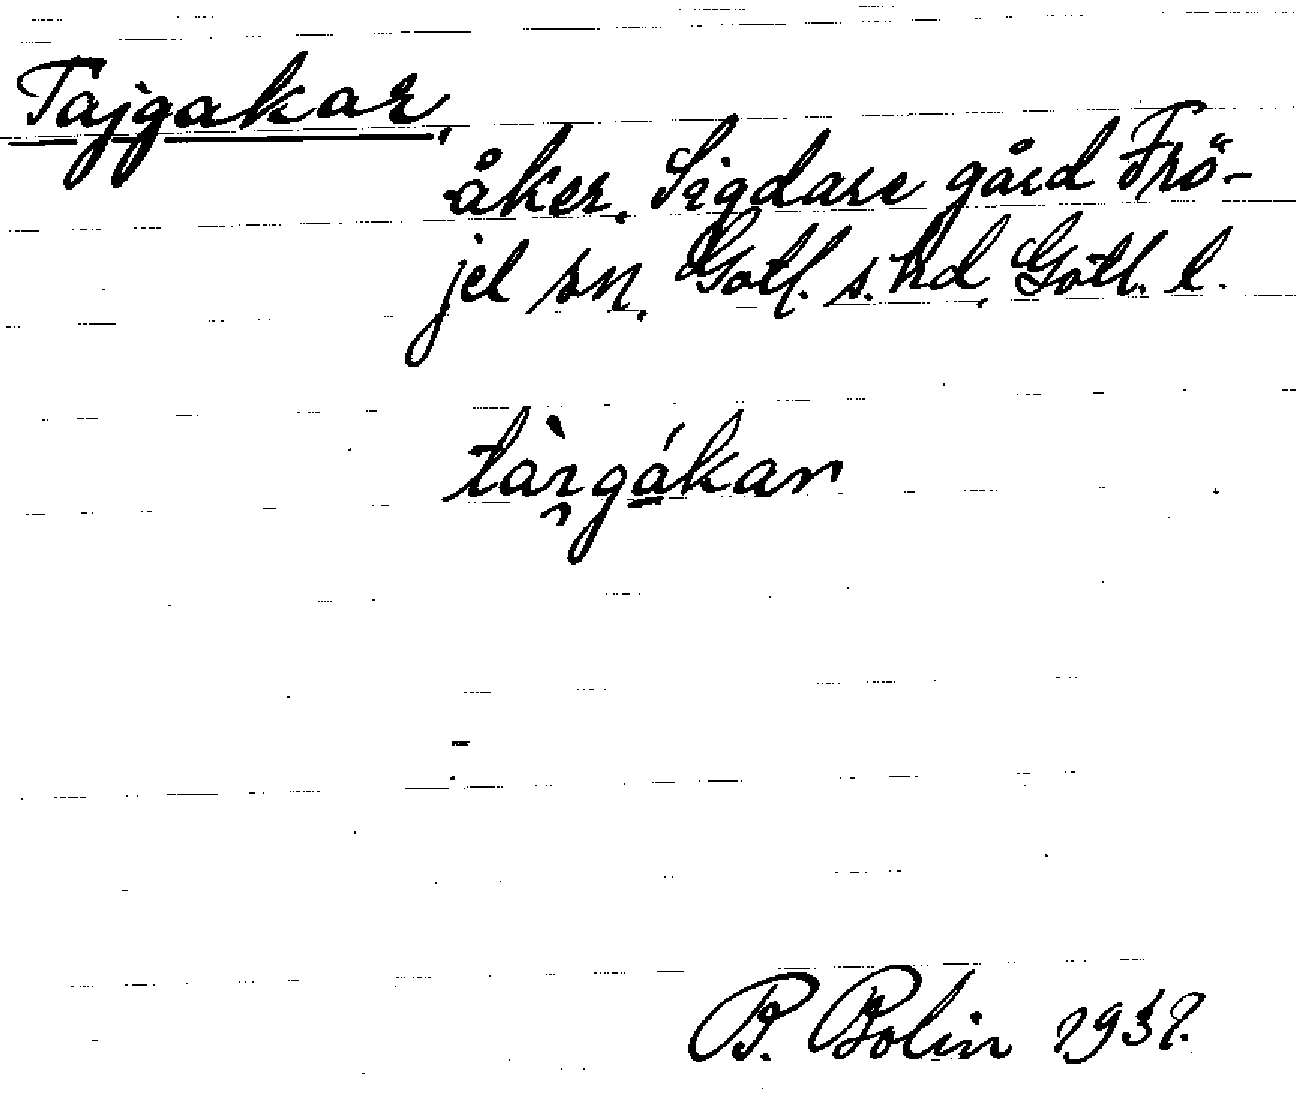 Tajgakar,
åker, Sigdare gård Frö-
jel sn, Gotl. s. hd, Gotl. l.
tài̯gákar
B. Bolin 1937.